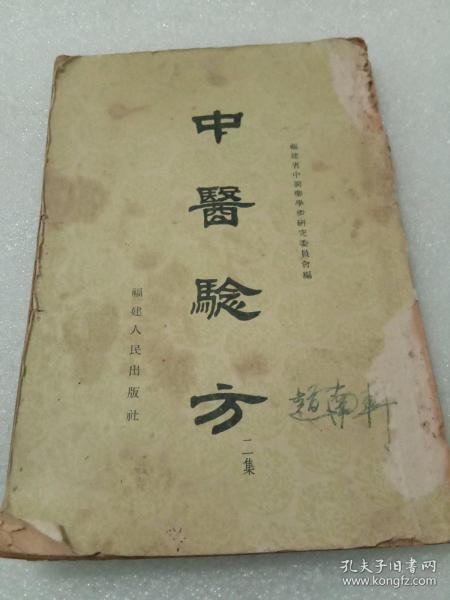 福建省中醫藥學術研究委員會編
中醫騐方
二集
福建人民出版社
孔夫子旧书网
www.kongfz.com